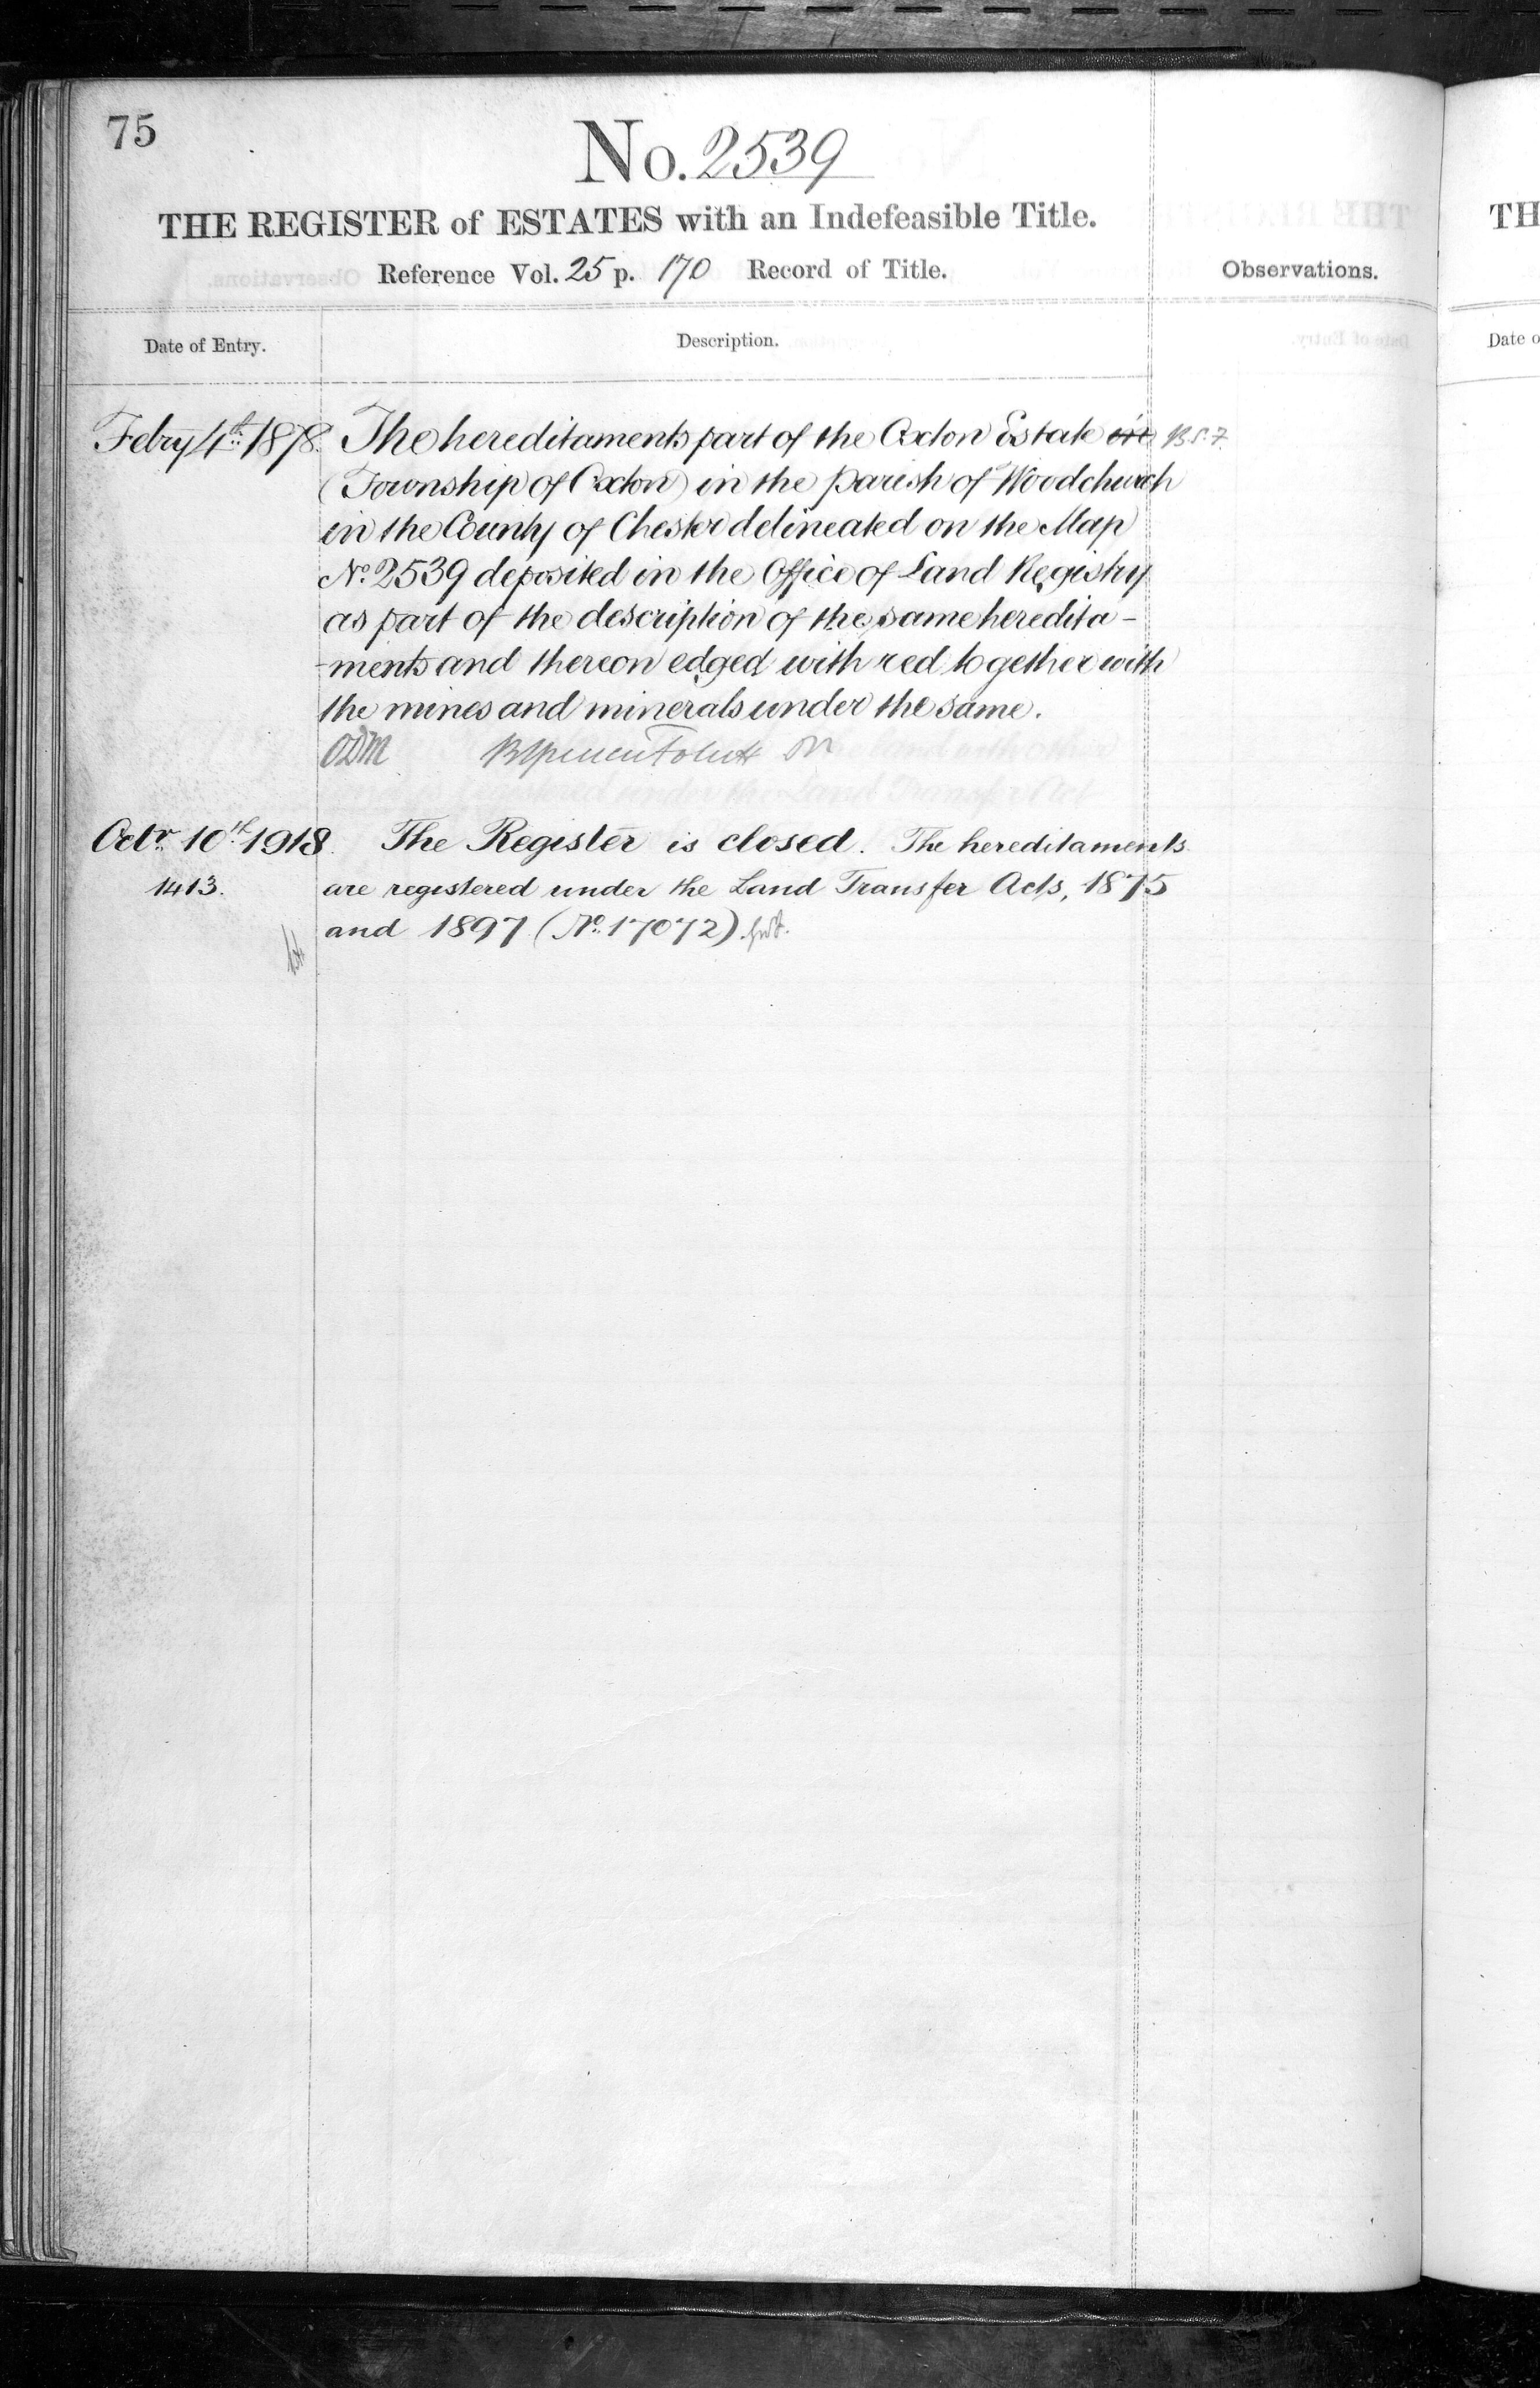 75
No. 2539
THE REGISTER of ESTATES with an Indefeasible Title.
Reference Vol. 25 p. 170 Record of Title.
Observations.
Date of Entry.
Description.
Febry 4th 1878. The hereditaments part of the Oxton Estate in B.S.F.
(Township of Oxton) in the parish of Woodchurch
in the County of Chester delineated on the Map
No. 2539 deposited in the Office of Land Registry
as part of the description of the same heredita-
-ments and thereon edged with red together with
the mines and minerals under the same.
ODM
Octr. 10th 1918. The Register is closed. The hereditaments
1413. are registered under the Land Transfer Acts, 1875
and 1897 (No. 17072)
TH
Date o